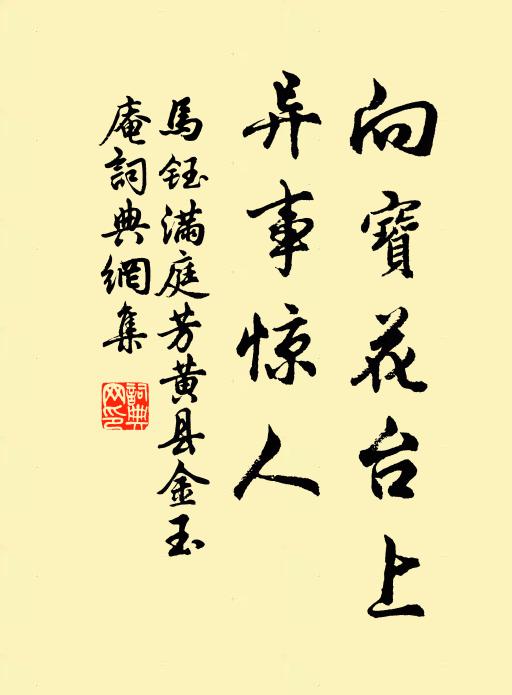 向寶花台上
异事惊人
馬鈺满庭芳黄县金玉
庵詞典網集
詞典网印